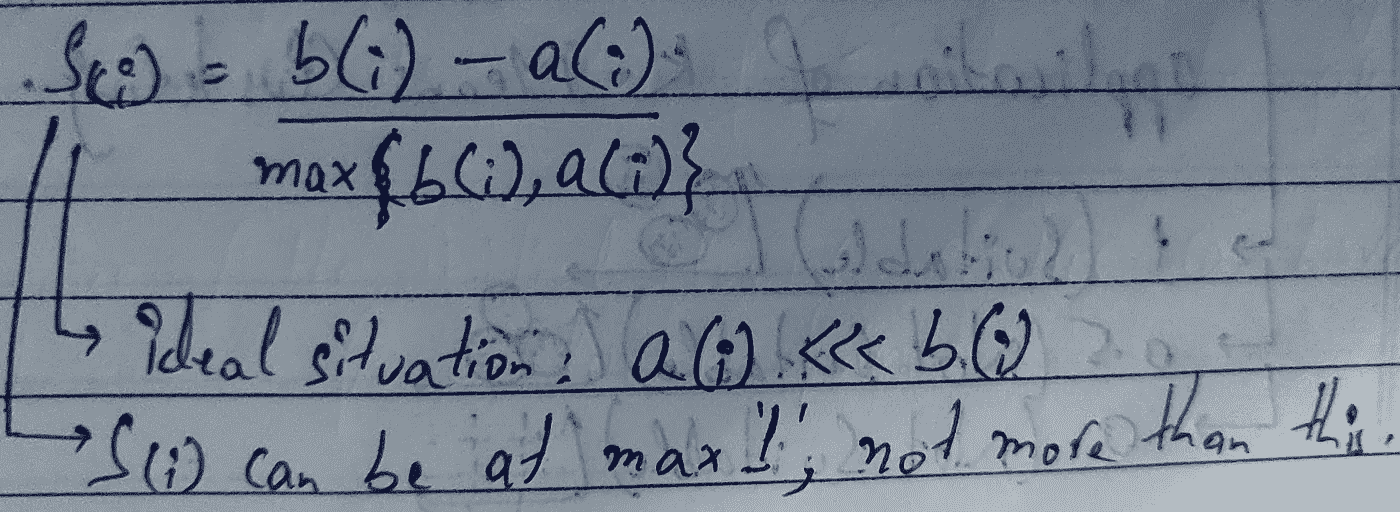 S(i) = b(i) - a(i)
max{b(i), a(i)}
ideal situation: a(i) <<< b(i)
S(i) can be at max '1', not more than this.